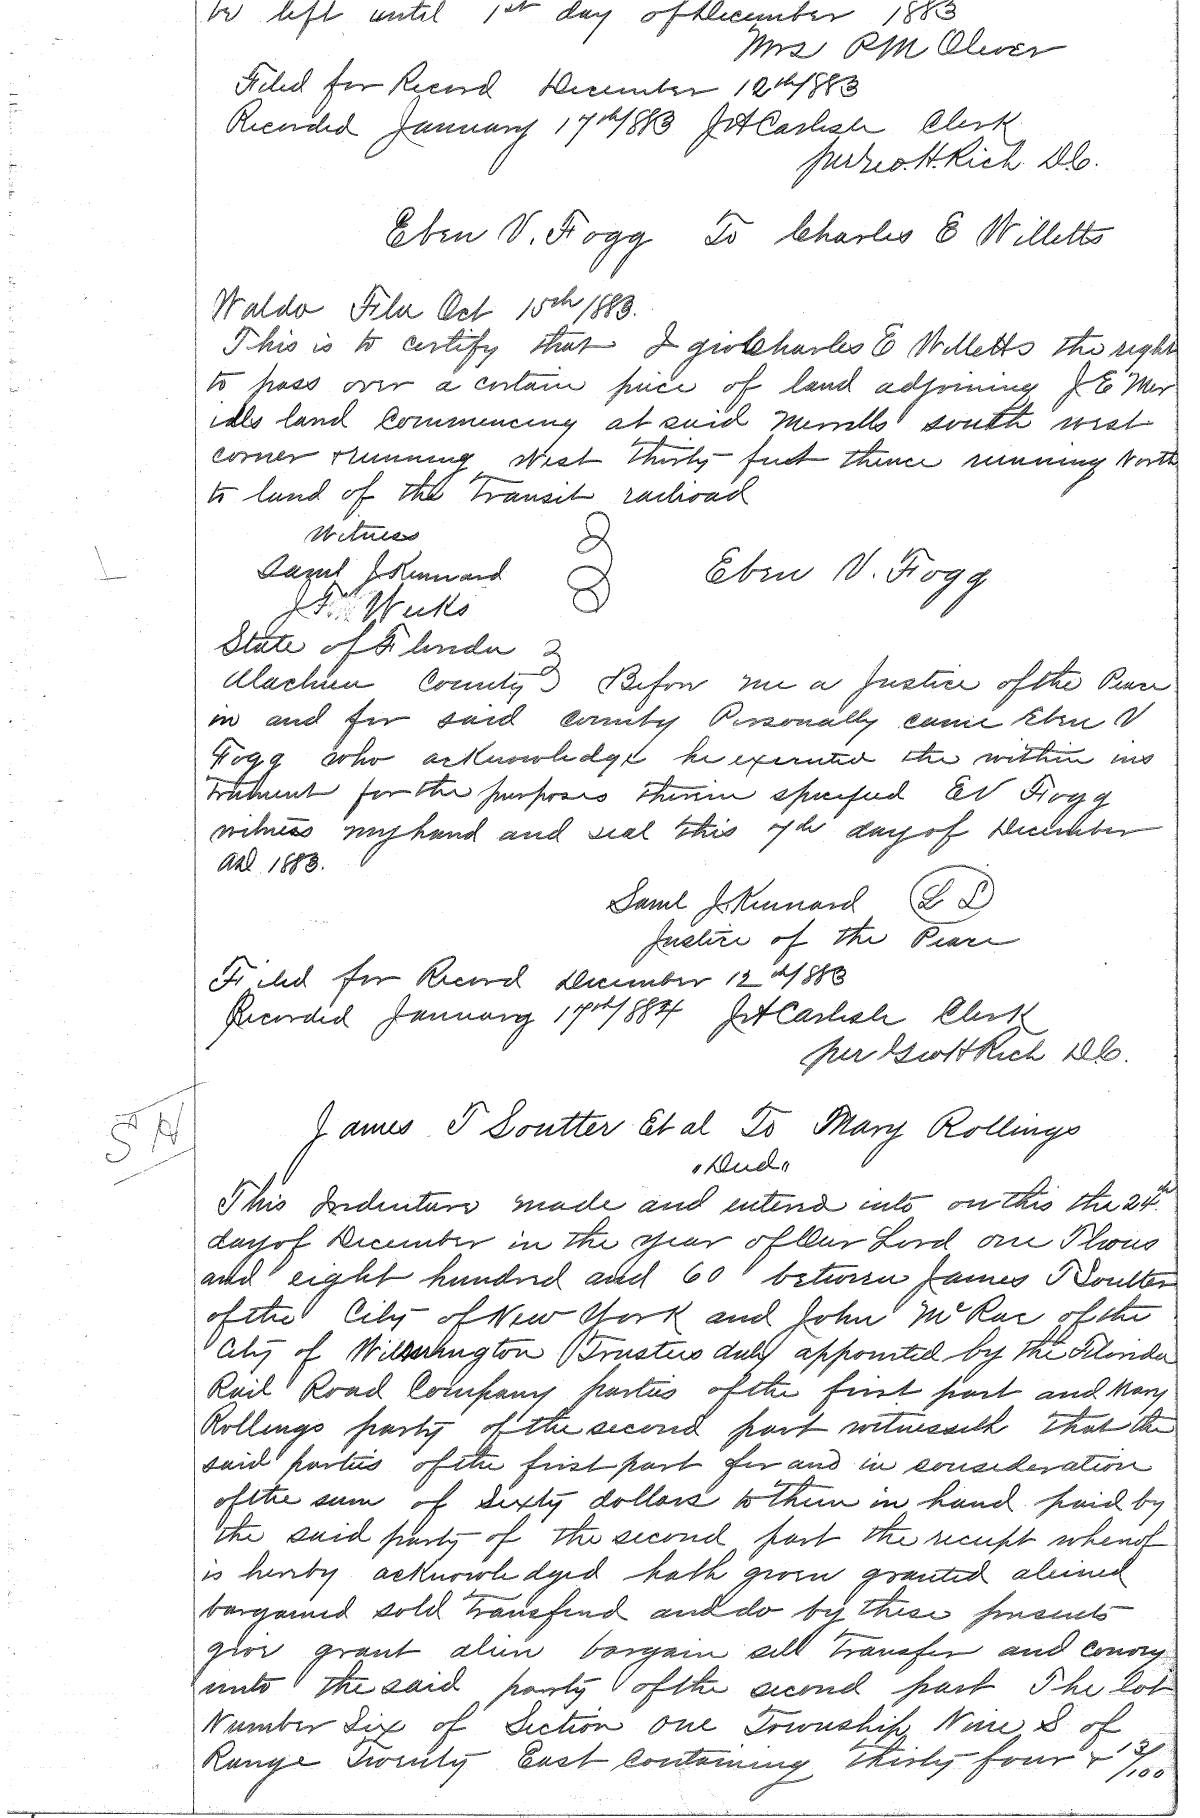 be left until 1st day of December 1883
Mrs P M Oliver
Filed for Record December 12th/1883
Recorded January 17th/1883 J A Carlisle Clerk
per Geo. H. Rich D.C.
Eben V. Fogg To Charles E Willetts
Waldo Fla Oct 15th/1883.
This is to certify that I give Charles E Willetts the right
to pass over a certain piece of land adjoining J E Mer
ills land commencing at said Merrells south west
corner & running West thirty feet thence running North
to land of the Transit railroad
Witness
Saml J Kennard
Eben V. Fogg
J F Weeks
State of Florida
Alachua County Before me a Justice of the Peace
in and for said county Personally came Eben V
Fogg who acknowledge he executed the within ins
trument for the purposes therein specified E V Fogg
witness my hand and seal this 7th day of December
AD 1883.
Saml J. Kennard L S
Justice of the Peace
Filed for Record December 12th/1883
Recorded January 17th/1884 J A Carlisle Clerk
per Geo H Rich D.C.
S H
James T Soutter Et al To Mary Rollings
"Deed"
This Indenture made and entered into on this the 24th
day of December in the year of Our Lord one Thous
and eight hundred and 60 between James T Soutter
of the City of New York and John McRae of the
City of Wilmington Trustees duly appointed by the Florida
Rail Road Company parties of the first part and Mary
Rollings party of the second part witnesseth that the
said parties of the first part for and in consideration
of the sum of Sixty dollars to them in hand paid by
the said party of the second part the receipt whereof
is hereby acknowledged hath given granted aliened
bargained sold transfered and do by these presents
give grant alien bargain sell transfer and convey
unto the said party of the second part The lot
Number Six of Section one Township Nine S of
Range Twenty East containing thirty four & 13/100